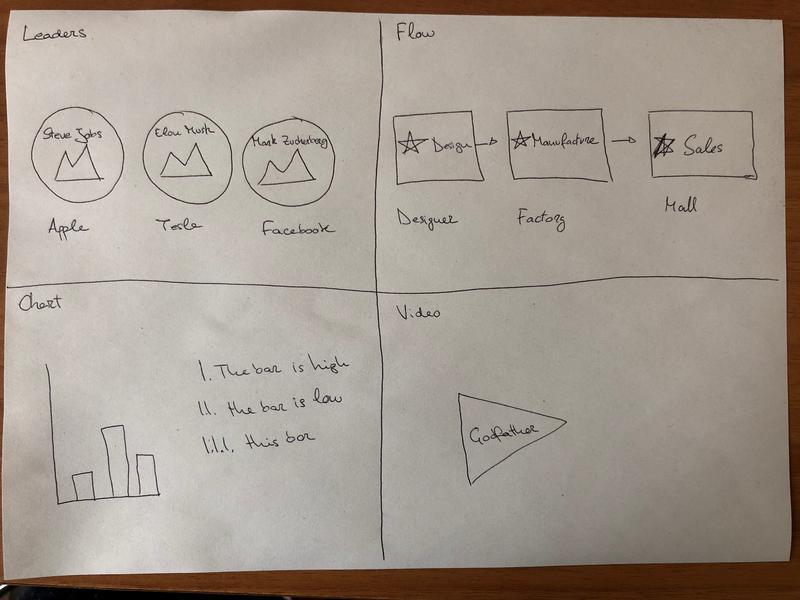 Leaders
Steve Jobs
Elon Musk
Mark Zuckerberg
Apple
Tesla
Facebook
Flow
Design
Manufacture
Sales
Designer
Factory
Mall
Chart
1. The bar is high
1.1. the bar is low
1.1.1. this bar
Video
Godfather